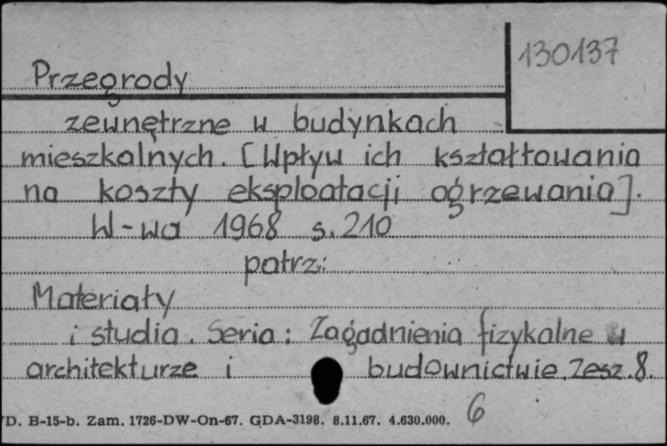 130137
Przegrody
zewnętrzne w budynkach
mieszkalnych. [Wpływ ich kształtowania
na koszty eksploatacji ogrzewania].
W-wa 1968 s. 210
patrz:
Materiały
i studia. Seria: Zagadnienia fizykalne w
architekturze i budownictwie. Zesz. 8.
D. B-15-b. Zam. 1726-DW-On-67. GDA-3198. 8.11.67. 4.630.000. 6